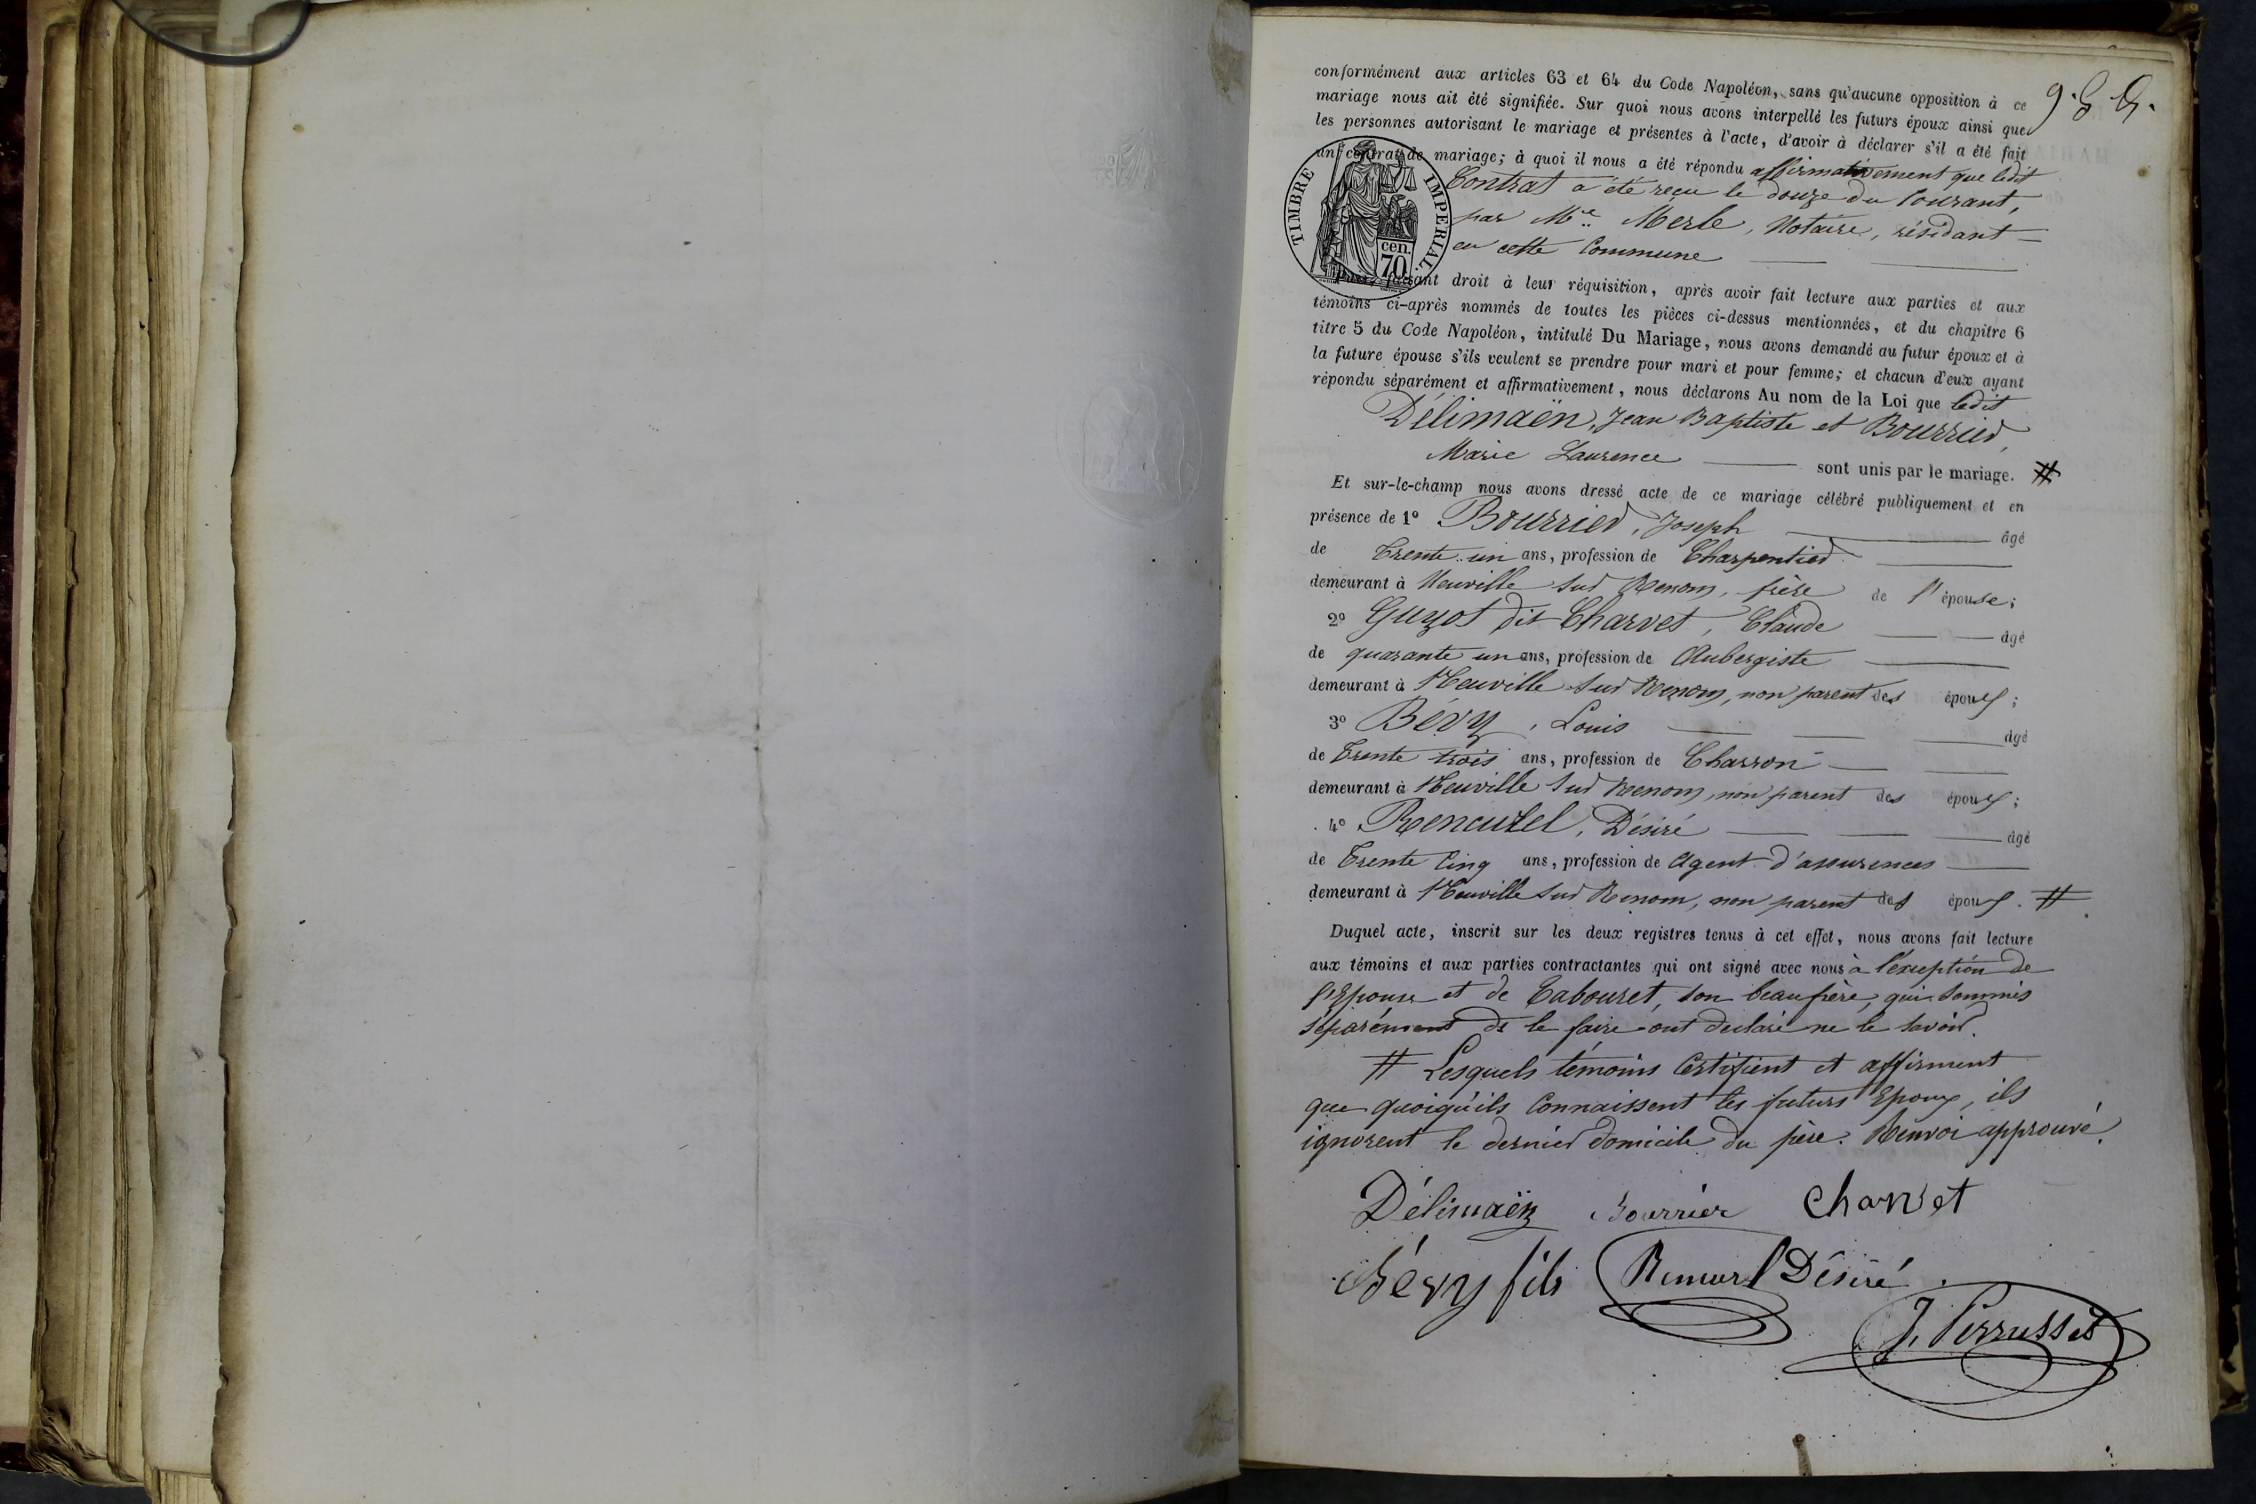 conformément aux articles 63 et 64 du Code Napoléon, sans qu'aucune opposition à ce
mariage nous ait été signifiée. Sur quoi nous avons interpellé les futurs époux ainsi que
les personnes autorisant le mariage et présentes à l'acte, d'avoir à déclarer s'il a été fait
un contrat de mariage; à quoi il nous a été répondu affirmativement que ledit
Contrat a été reçu le douze du Courant,
par Me Merle, Notaire, résidant
en cette Commune
TIMBRE IMPÉRIAL
cen.
70
faisant droit à leur réquisition, après avoir fait lecture aux parties et aux
témoins ci-après nommés de toutes les pièces ci-dessus mentionnées, et du chapitre 6
titre 5 du Code Napoléon, intitulé Du Mariage, nous avons demandé au futur époux et à
la future épouse s'ils veulent se prendre pour mari et pour femme; et chacun d'eux ayant
répondu séparément et affirmativement, nous déclarons Au nom de la Loi que ledit
Délimaën, Jean Baptiste et Bourrier,
Marie Laurence sont unis par le mariage. #
Et sur-le-champ nous avons dressé acte de ce mariage célébré publiquement et en
présence de 1º Bourrier, Joseph âgé
de Trente-un ans, profession de Charpentier
demeurant à Neuville sur Renom, frère de l'épouse;
2º Guyot dit Charvet, Claude âgé
de quarante un ans, profession de Aubergiste
demeurant à Neuville sur Renom, non parent des époux;
3º Bévy, Louis âgé
de Trente trois ans, profession de Charron
demeurant à Neuville sur Renom, non parent des époux;
4º Rencurel, Désiré âgé
de Trente Cinq ans, profession de Agent d'assurences
demeurant à Neuville sur Renom, non parent des époux. #
Duquel acte, inscrit sur les deux registres tenus à cet effet, nous avons fait lecture
aux témoins et aux parties contractantes qui ont signé avec nous à l'exception de
l'Epouse et de Tabouret, son beau frère, qui sommés
séparément de le faire ont déclaré ne le savoir.
# Lesquels témoins Certifient et affirment
que quoiqu'ils Connaissent les futurs Epoux, ils
ignorent le dernier domicile du père. Renvoi approuvé.
Délimaën Bourrier Charvet
Bévy fils Rencurel Désiré
J. Perrusset